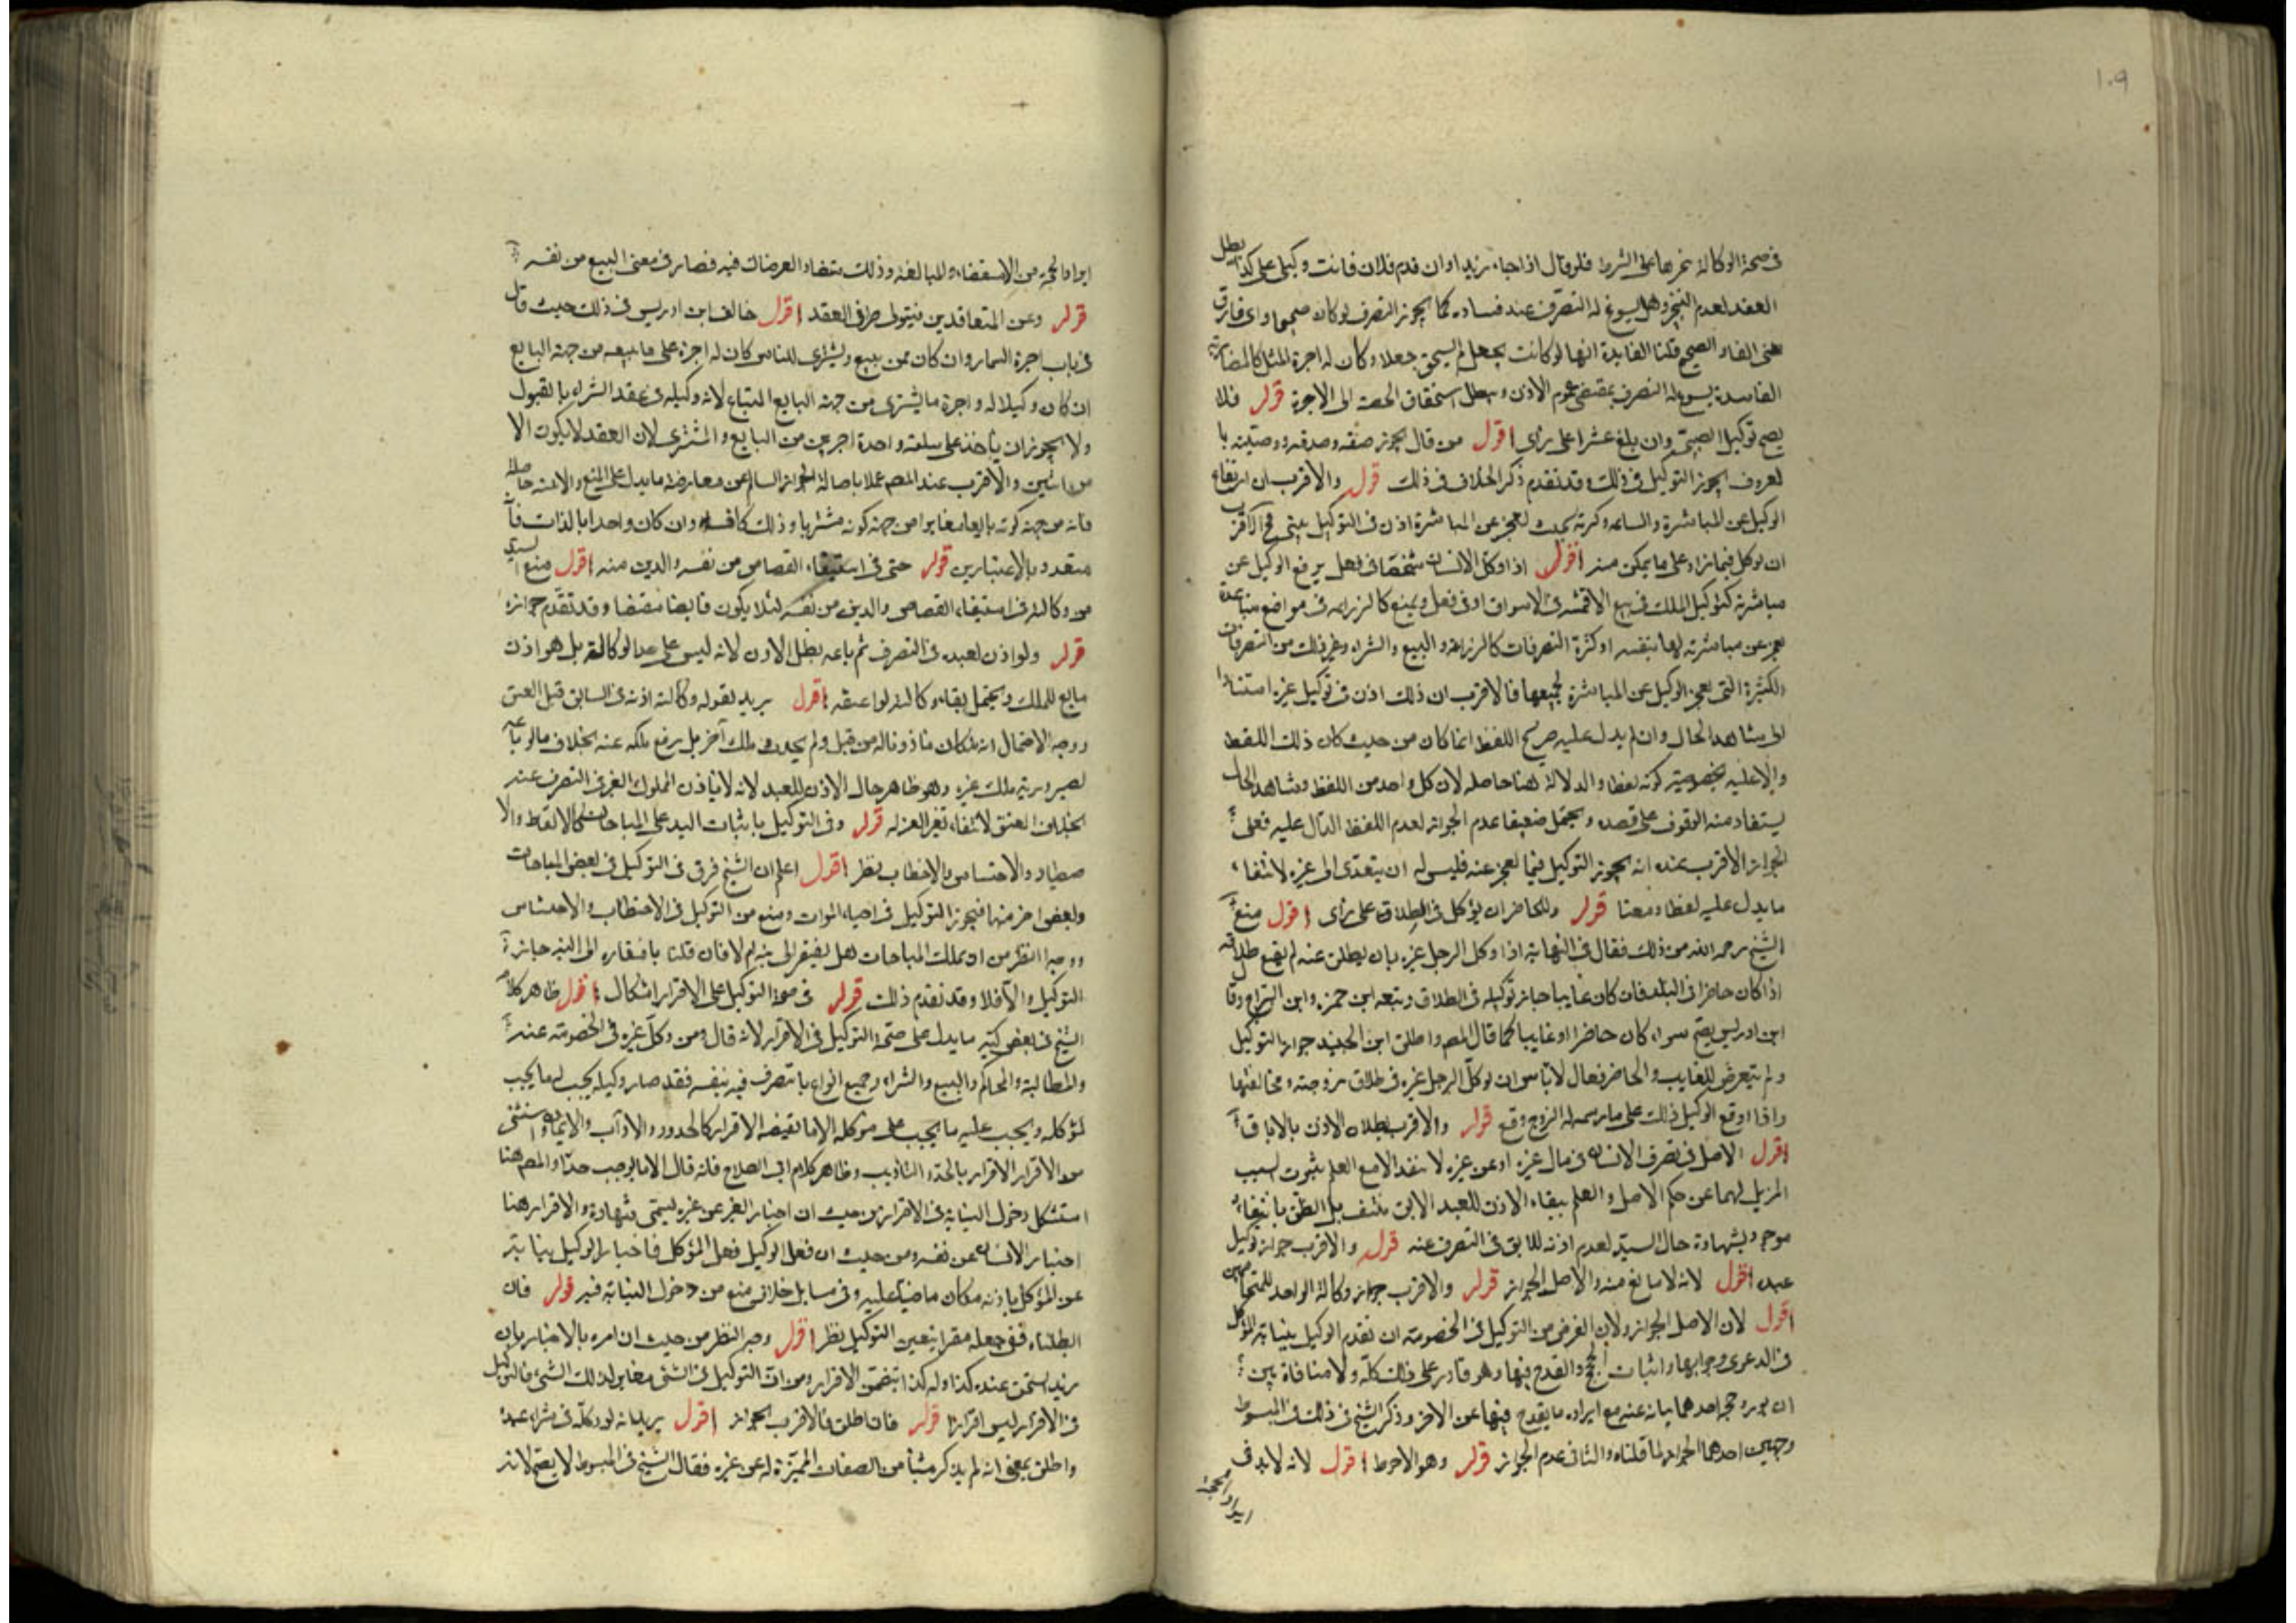 ١٠٩
في صحة الوكالة نحرها على الشرط فلو قال اذا جاء زيد او ان قدم فلان فانت وكيلي على كذا بطل
العقد لعدم التنجيز وهل يسوغ له التصرف عند فساده كما يجوز التصرف لو كان صحيحا واي فارق
بين الفاسد والصحيح قلنا الفايدة انها لو كانت بجعل لم يستحق جعلا وكان له اجرة المثل كالمضاربة
الفاسدة يسوغ له التصرف بمقتضى عموم الاذن وبطل استحقاق الحصة الى الاجرة قوله فلا
يصح توكيل الصبي وان بلغ عشرا على راى اقول من قال يجوز عتقه وصدقته ووصيته با
لمعروف يجوز التوكيل في ذلك وقد تقدم ذكر الخلاف في ذلك قوله والاقرب ان ارتفاع
الوكيل عن المباشرة والساعه وكثرته بحيث يعجز عن المباشرة اذن في التوكيل فحينئذ الاقرب
ان يوكل فيما زاد على ما يمكن منه اقول اذا وكل الانسان شخصا في فعل يرفع الوكيل عن
مباشرته كتوكيل الملك في بيع الاقمشه في الاسواق او في فعل ويمنع كالزراعه في مواضع متباعدة
يعجز عن مباشرته لها بنفسه او كثرة التصرفات كالزراعة والبيع والشراء وغير ذلك من التصرفات
الكثيرة التي يعجز الوكيل عن المباشرة لجميعها فالاقرب ان ذلك اذن في توكيل غيره استنادا
الى شاهد الحال وان لم يدل عليه صريح اللفظ انما كان من حيث كان ذلك اللفظ
والا عليه بخصوصية كونه لفظا والدلالة هنا حاصله لان كل واحد من اللفظ وشاهد الحال
يستفاد منه الوقوف على قصده ويحتمل ضعيفا عدم الجواز لعدم اللفظ الدال عليه فعلى
الجواز الاقرب عنده انه يجوز التوكيل فيما يعجز عنه فليس له ان يتعدى الى غيره لانتفاء
ما يدل عليه لفظا ومعنا قوله وللحاضر ان يوكل في الطلاق على راى اقول منع
الشيخ رحمه الله من ذلك فقال في النهاية اذا وكل الرجل غيره بان يطلق عنه لم يقع طلاقه
اذا كان حاضرا في البلد فان كان غايبا جاز توكيله في الطلاق وتبعه ابن حمزه وابن البراج وقا
ابن ادريس يصح سواء كان حاضرا او غايبا كما قال المص واطلق ابن الجنيد جواز التوكيل
ولم يتعرض للغايب والحاضر فقال لا باس ان يوكل الرجل غيره في طلاق زوجته ومخالعتها
واذا اوقع الوكيل ذلك على ما رسمه له الزوج وقع قوله والاقرب بطلان الاذن بالاباق
اقول الاصل في تصرف الانسان في مال غيره او عن غيره لا ينفذ الا مع العلم بثبوت السبب
المزيل لهما عن حكم الاصل والعلم ببقاء الاذن للعبد الابق منتف بل الظن بانتفائه
موجود بشهادة حال السيد لعدم اذنه للابق في التصرف عنه قوله والاقرب جواز توكيل
عبده اقول لانه لا مانع منه والاصل الجواز قوله والاقرب جواز وكالة الواحد للمتخاصمين
اقول لان الاصل الجواز ولان الغرض من التوكيل في الخصومة ان يقدم الوكيل بنيابة الموكل
في الدعوى وجوابها واثبات الحجج والقدح فيها وهو قادر على ذلك كله ولا منافاة بين
ان يورد حجة احدهما نيابة عنه مع ايراد ما يقدح فيها عن الاخر وذكر الشيخ في ذلك في المبسوط
وجهين احدهما الجواز لما قلناه والثاني عدم الجواز قوله وهو الاحوط اقول لانه لا بد في
ايراد الحجة
ايراد الحجة من الاستقضاء والمبالغة وذلك متضاد الغرضان فيه فصار في معنى البيع من نفسه
قوله وعن المتعاقدين فيتولى طرفي العقد اقول خالف ابن ادريس في ذلك حيث قال
في باب اجرة السمسار وان كان ممن يبيع ويشتري للناس كان له اجرة على ما يبيعه من جهة البايع
ان كان وكيلا له واجرة ما يشتري من جهة البايع المبتاع لانه وكيله في عقد الشراء بالقبول
ولا يجوز ان ياخذ على سلعة واحدة اجرتين من البايع والمشتري لان العقد لا يكون الا
من اثنين والاقرب عند المص عملا باصالة الجواز السالم عن معارضة ما يدل على المنع والاثنينية حاصلة
فانه من جهة كونه بايعا مغايرا من جهة كونه مشتريا وذلك كاف وان كان واحدا بالذات فا
متعدد بالاعتبارين قوله حتى في استيفاء القصاص من نفسه والدين منه اقول منع السيد
من وكالته في استيفاء القصاص والدين من نفسه لئلا يكون قابضا مقبضا وقد تقدم جوازه
قوله ولو اذن لعبده في التصرف ثم باعه بطل الاذن لانه ليس على حد الوكالة بل هو اذن
تابع للملك ويحتمل بقاء وكالته لو اعتقه اقول يريد بقوله وكالته اذنه في السابق قبل العتق
ووجه الاحتمال انه كان ماذونا له من قبل ولم يحدث ملك اخر بل رفع ملكه عنه بخلاف ما لو باعه
لصيرورته ملك غيره وهو ظاهر حال الاذن للعبد لانه لا ياذن المملوك الغير في التصرف عنه
بخلاف العتق لانتفاء تغير العزله قوله وفي التوكيل باثبات اليد على المباحات كالالتقاط والا
صطياد والاحتشاش والاحتطاب نظر اقول اعلم ان الشيخ فرق في التوكيل في بعض المباحات
وبعض اخر منها فيجوز التوكيل في احياء الموات ومنع من التوكيل في الاحتطاب والاحتشاش
ووجه النظر من ان تملك المباحات هل يفتقر الى نية ام لا فان قلنا بافتقاره الى النيه جاز
التوكيل والا فلا وقد تقدم ذلك قوله في صحة التوكيل على الاقرار اشكال اقول ظاهر كلام
الشيخ في بعض كتبه ما يدل على صحة التوكيل في الاقرار لانه قال ومن وكل غيره في الخصومة عنه
والمطالبة والمحاكم والبيع والشراء وجميع انواع ما يتصرف فيه بنفسه فقد صار وكيله يجب له ما يجب
لموكله ويجب عليه ما يجب على موكله الا ما تقتضيه الاقرار كالحدود والاداب والايمان واستثنى
من الاقرار الاقرار بالحد والتاديب وظاهر كلام ابي الصلاح فانه قال الا ما يوجب حدا والمص هنا
استشكل دخول النيابة في الاقرار من حيث ان اخبار الغير عن غيره يسمى شهادة والاقرار هنا
اخبار الانسان عن نفسه ومن حيث ان فعل الوكيل فعل الموكل فاخبار الوكيل بنيابته
عن الموكل باذنه فكان ماضيا عليه وفي مسايل خلافي منع من دخول النيابة فيه قوله فان
ابطلناه ففي جعله مقرا بتعيين التوكيل نظر اقول وجه النظر من حيث ان امره بالاخبار بان
زيدا يستحق عنده كذا وله كذا يتضمن الاقرار ومن ان التوكيل في الشيء مغاير لذلك الشيء فالتوكيل
في الاقرار ليس اقرارا قوله فان اطلق فالاقرب الجواز اقول يريد انه لو وكله في شراء عبد
واطلق بمعنى انه لم يذكر شيئا من الصفات المميزة له عن غيره فقال الشيخ في المبسوط لا يصح لانه